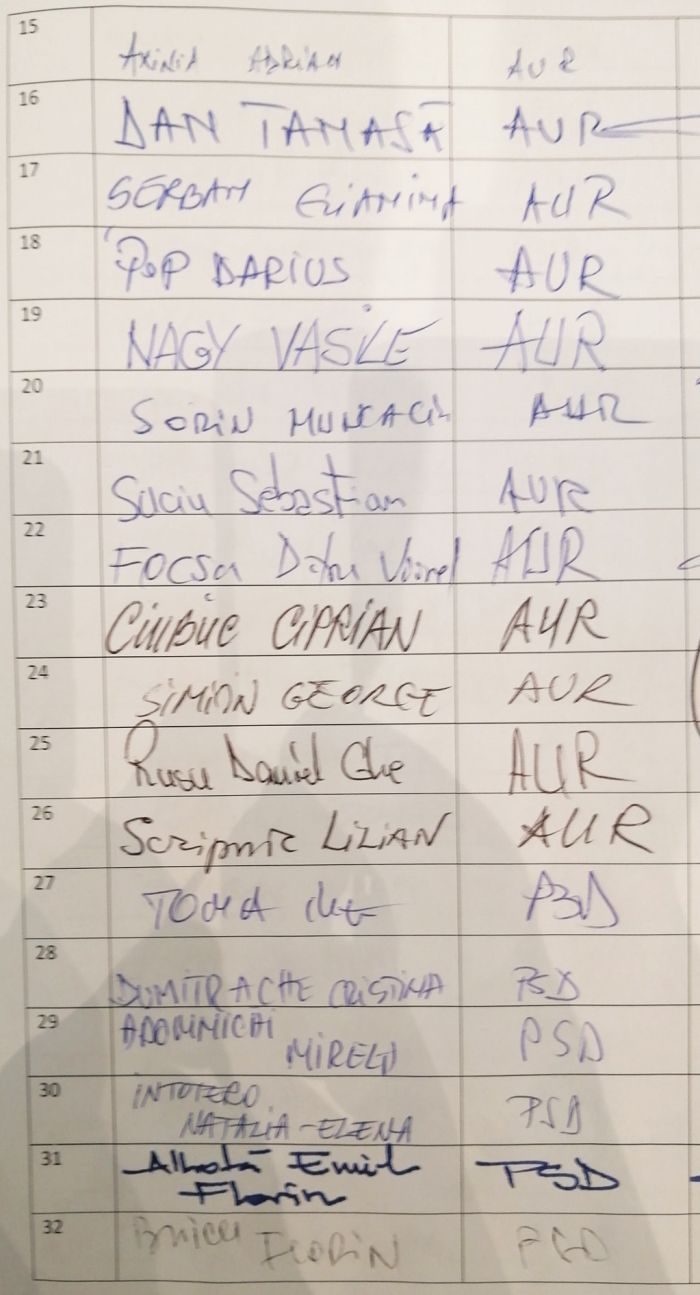 15 AXINIA ADRIAN AUR
16 DAN TANASĂ AUR
17 SERBAN GIANINA AUR
18 POP DARIUS AUR
19 NAGY VASILE AUR
20 SORIN MUNCACIU AUR
21 Suciu Sebastian AUR
22 Focsa Dătu Viorel AUR
23 CIUBUC CIPRIAN AUR
24 SIMION GEORGE AUR
25 Rusu Daniel Ghe AUR
26 Scripnic LILIAN AUR
27 TOMA PSD
28 DUMITRACHE CRISTINA PSD
29 ADOMNICĂI
MIRELA PSD
30 INTOTERO
NATALIA-ELENA PSD
31 Albotă Emil
Florin PSD
32 FLORIN PSD